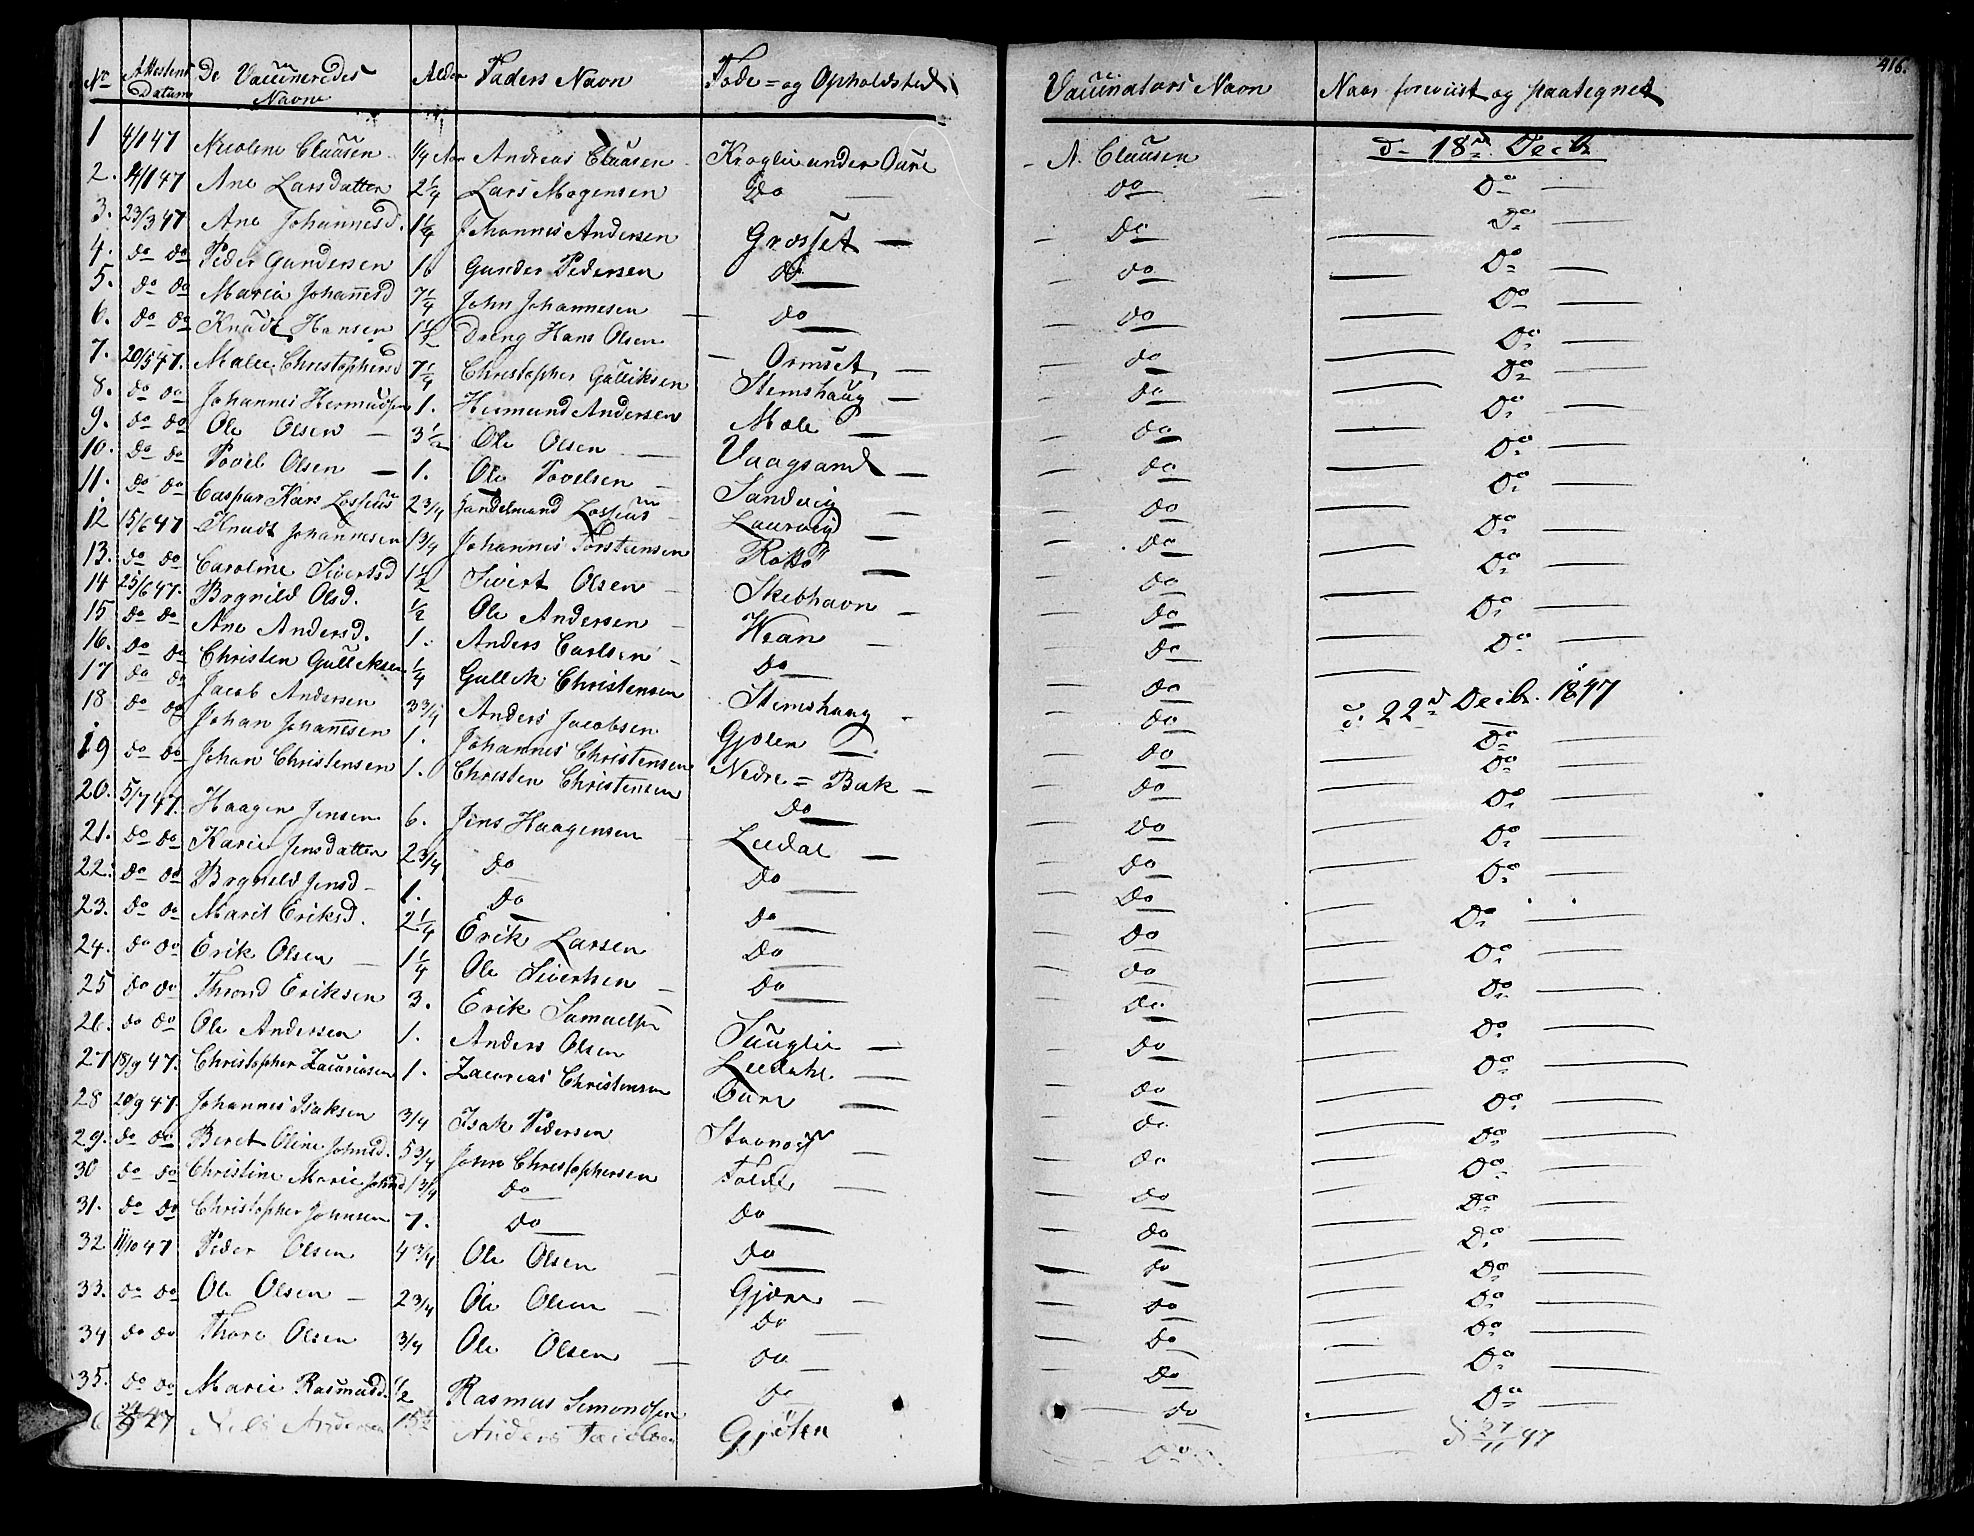 416.
No Attestens Datum De Vaccineredes Navne Alder Faders Navn Føde= og Opholdsted Vaccinators Navn Naar foreviist og paategnet
1 4/1 47 Nicoline Claüsen 1/4 Aar Andreas Claüsen Kroglie under Oüre A. Claüsen d. 18de Decbr
2. 4/1 47 Ane Larsdatter 2 1/4 Lars Mogensen Do Do Do
3. 23/3 47 Ane Johannesd. 1 1/4 Johannes Andersen Grøsset Do Do
4. do do Peder Gundersen 1. Gunder Pedersen do do Do
5. do do Maria Johañesd 7 1/4 John Johannesen do do Do
6. do do Knüdt Hansen 1 1/2 Dreng Hans Olsen Ormset do Do
7. 20/5 47. Malee Christophersd 7 1/4 Christopher Gülliksen Stemshaüg do Do
8. do do Johannes Hermüdsen 1. Hermund Andersen Mole do Do
9. do do Ole Olsen 3 1/2 Ole Olsen Vaagsand do Do
10. do do Povel Olsen 1. Ole Povelsen Sandvig do Do
11. do do Caspar Kars Lossiüs 2 3/4 Handelsmand Lossiüs Laurvig do Do
12 15/6 47 Knudt Johannesen 1 3/4 Johannes Torstensen Rottø do Do
13. do do Caroline Sivertsd 1 1/2 Sivert Olsen Skibhavn do Do
14 25/6 47. Brynild Olsd. 1/2 Ole Andersen Wean do Do
15 do do Ane Andersd. 1. Anders Carlsen do do d. 22de Decbr. 1847
16. do do Christen Gülleksen 1/4 Gullek Christensen Stemshaug do Do
17 do do Jacob Andersen 3 3/4 Anders Jacobsen Gjølen do Do
18 do do Johan Johañesen 1. Johannes Christensen Nedre = Bak do Do
19 do do Johan Christensen 1. Christen Christensen do do Do
20. 5/7 47. Haagen Jensen 6. Jens Haagensen Leedal do Do
21. do do Karie Jensdatter 2 3/4 do do do Do
22. do do Brynild Jensd 1. do do do Do
23. do do Marit Eriksd. 2 1/4 Erik Larsen do do Do
24. do do Erik Olsen 1 1/4 Ole Sivertsen do do Do
25 do do Thrond Eriksen 3. Erik Samuelsen Saüglie do Do
26. do do Ole Andersen 1. Anders Olsen Leedahl do Do
27 18/9 47. Christopher Zacariasen 1. Zacarias Christensen Oure do Do
28 20/9 47. Johannes Isaksen 3/4 Isak Pedersen Stavnæs do Do
29. do do Beret Oline Johnsd. 5 3/4 John Christophersen Folde do Do
30 do do Christine Marie Johnsd 1 3/4 do do do Do
31. do do Christopher Johnsen 7. do do do Do
32 11/10 47 Peder Olsen 4 3/4 Ole Olsen Gjøre do Do
33. do do Ole Olsen 2 3/4 Ole Olsen do do Do
34 do do Thore Olsen 3/4 Ole Olsen do do Do
35. do do Marie Rasmüsd. 1/2 Rasmus Simondsen do do Do
6 27 Nils Andersen 15 1/2 Anders Jacobsen Gjølen Do d 27/11 47